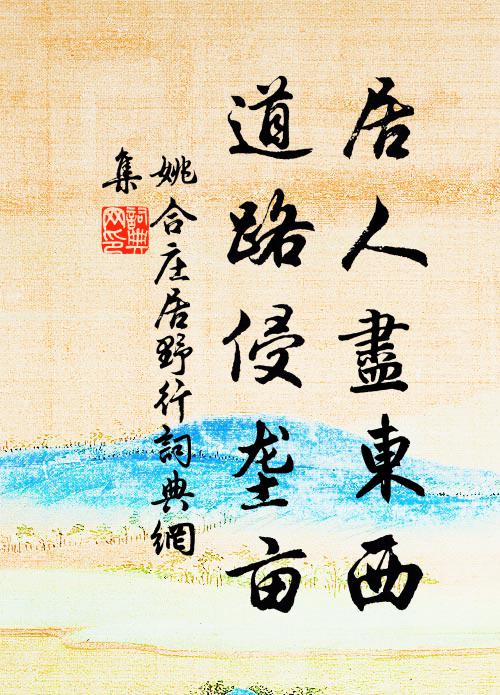 居人盡東西
道路侵垄亩
姚合庄居野行詞典網
集
詞典
网印